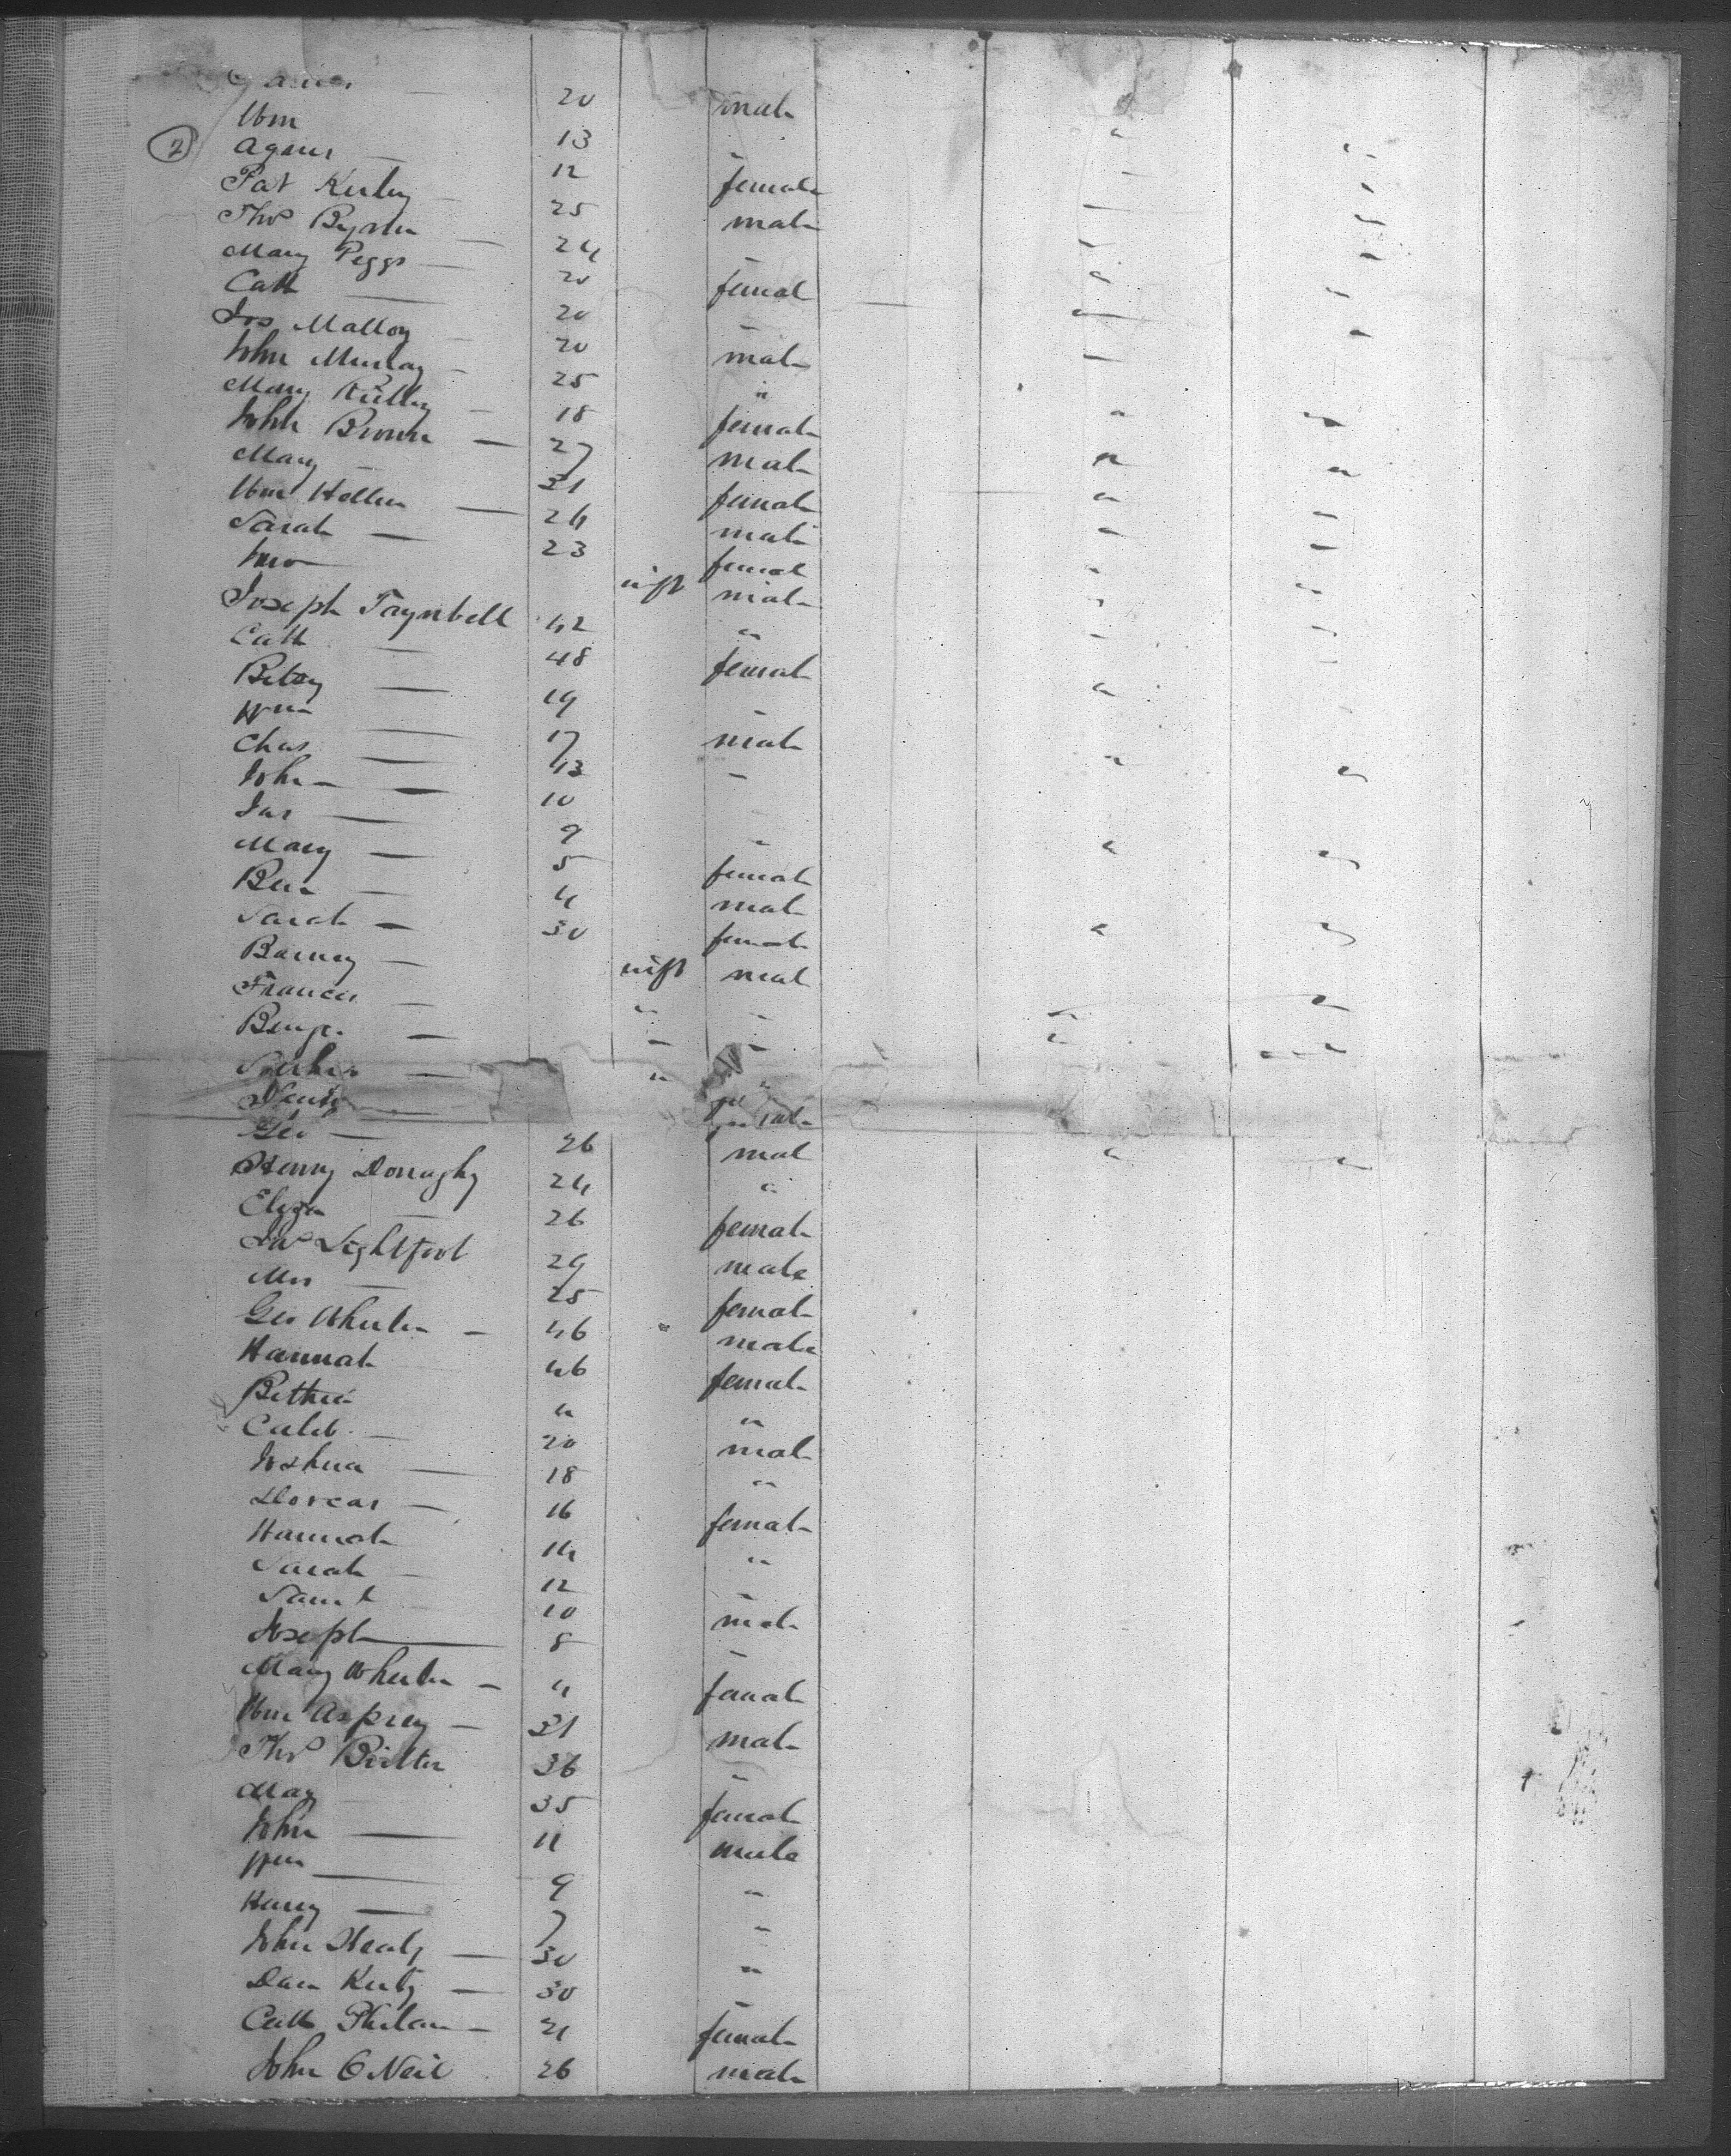 James — 20 male
Wm 13 "
2 Agnes — 12 female
Pat Kerley — 25 male
Thos Byrne — 24 "
Mary Peggs — 20 female
Cath — 20 "
Jos Malloy — 20 male
John Murray — 25 "
Mary Kelley — 18 female
John Brown — 27 male
Mary — 31 female
Wm Hellen — 24 male
Sarah — 23 female
Jno — inft male
Joseph Taynbell 42 "
Cath — 48 female
Bitsy — 19 "
Wm — 17 male
Chas — 13 "
John — 10
Jas — 9 "
Mary — 5 female
Ben — 4 male
Sarah — 30 female
Barney — inft male
Francis — " "
Benjn — " "
— " "
Geo — 26 male
Henry Donaghy 24 "
Eliza — 26 female
Jas Lightfoot 29 male
Mrs — 25 female
Geo Wheeler — 46 male
Hannah 46 female
" "
Caleb — 20 male
Joshua — 18 "
Dorcas — 16 female
Hannah 14 "
Sarah — 12 "
Saml 10 male
Joseph — 8 "
Mary Wheeler — 4 female
Wm Asprey — 31 male
Thos 36 "
May 35 female
John — 11 male
Wm — 9 "
Henry — 7 "
John Healy — 30 "
Dan — 30 "
Cath Philan — 21 female
John O Neil 26 male